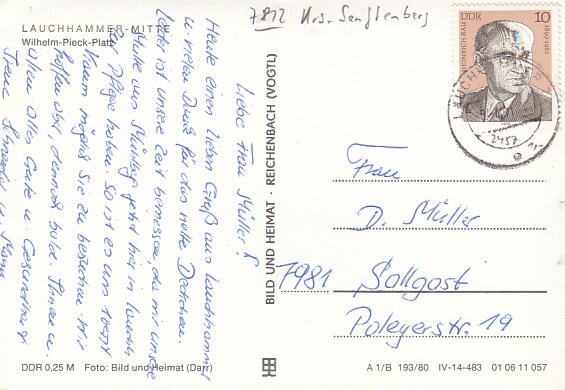 LAUCHHAMMER-MITTE
Wilhelm-Pieck-Platz
7812 Krs. Senftenberg
DDR 10
HEINRICH RAU 1899-1961
2457
Liebe Frau Müller!
Heute einen lieben Gruß aus Lauchhammer
u. vielen Dank für das nette
Leider ist unsere Zeit bemessen, da wir unsere
Mutter aus jetzt hier in
zur Pflege haben. So ist es uns
kaum möglich Sie zu besuchen. Wir
hoffen aber, dennoch bald. Ihnen u.
allen alles Gute u. Gesundheit
Frau u. Mann
BILD UND HEIMAT · REICHENBACH (VOGTL)
Frau
D. Müller
7981 Sallgost
Poleyerstr. 19
DDR 0,25 M Foto: Bild und Heimat (Darr)
A 1/B 193/80 IV-14-483 01 06 11 057